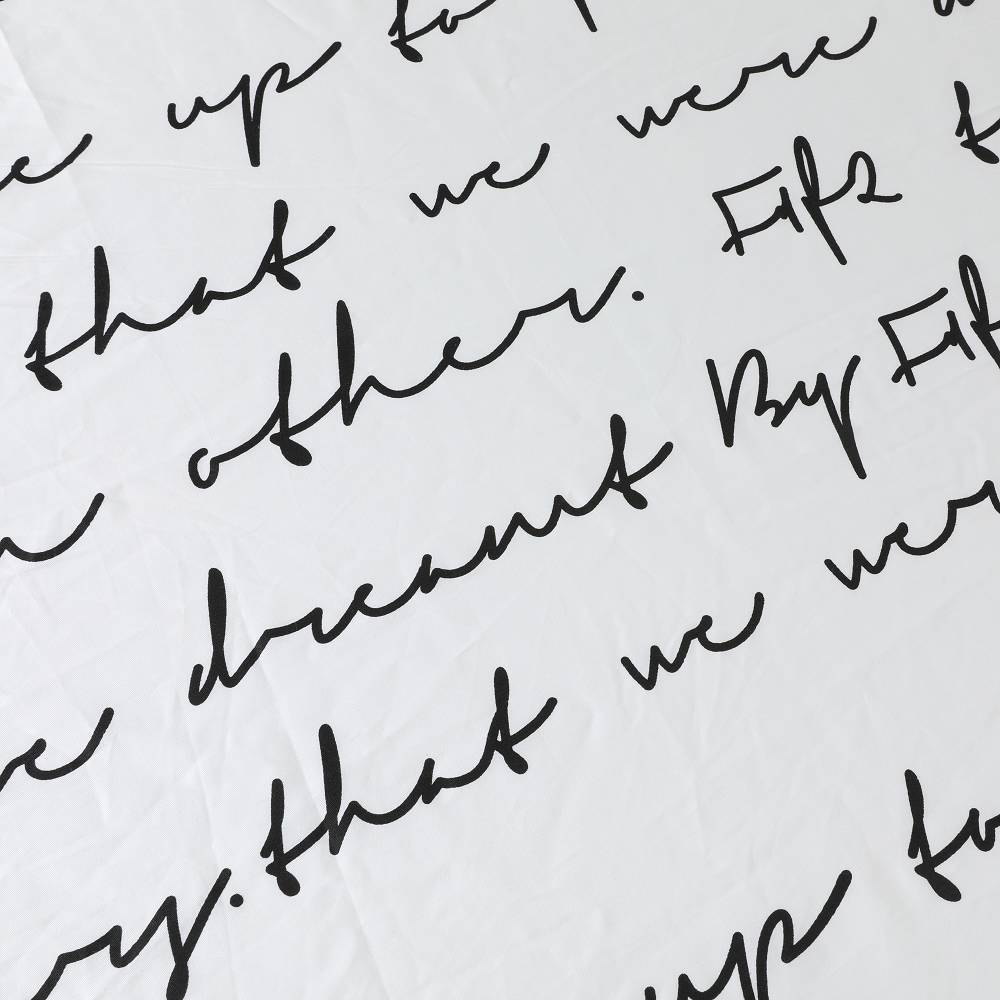 up to
that we were
other. Fifz
dreamt By Fif
that we wer
up to